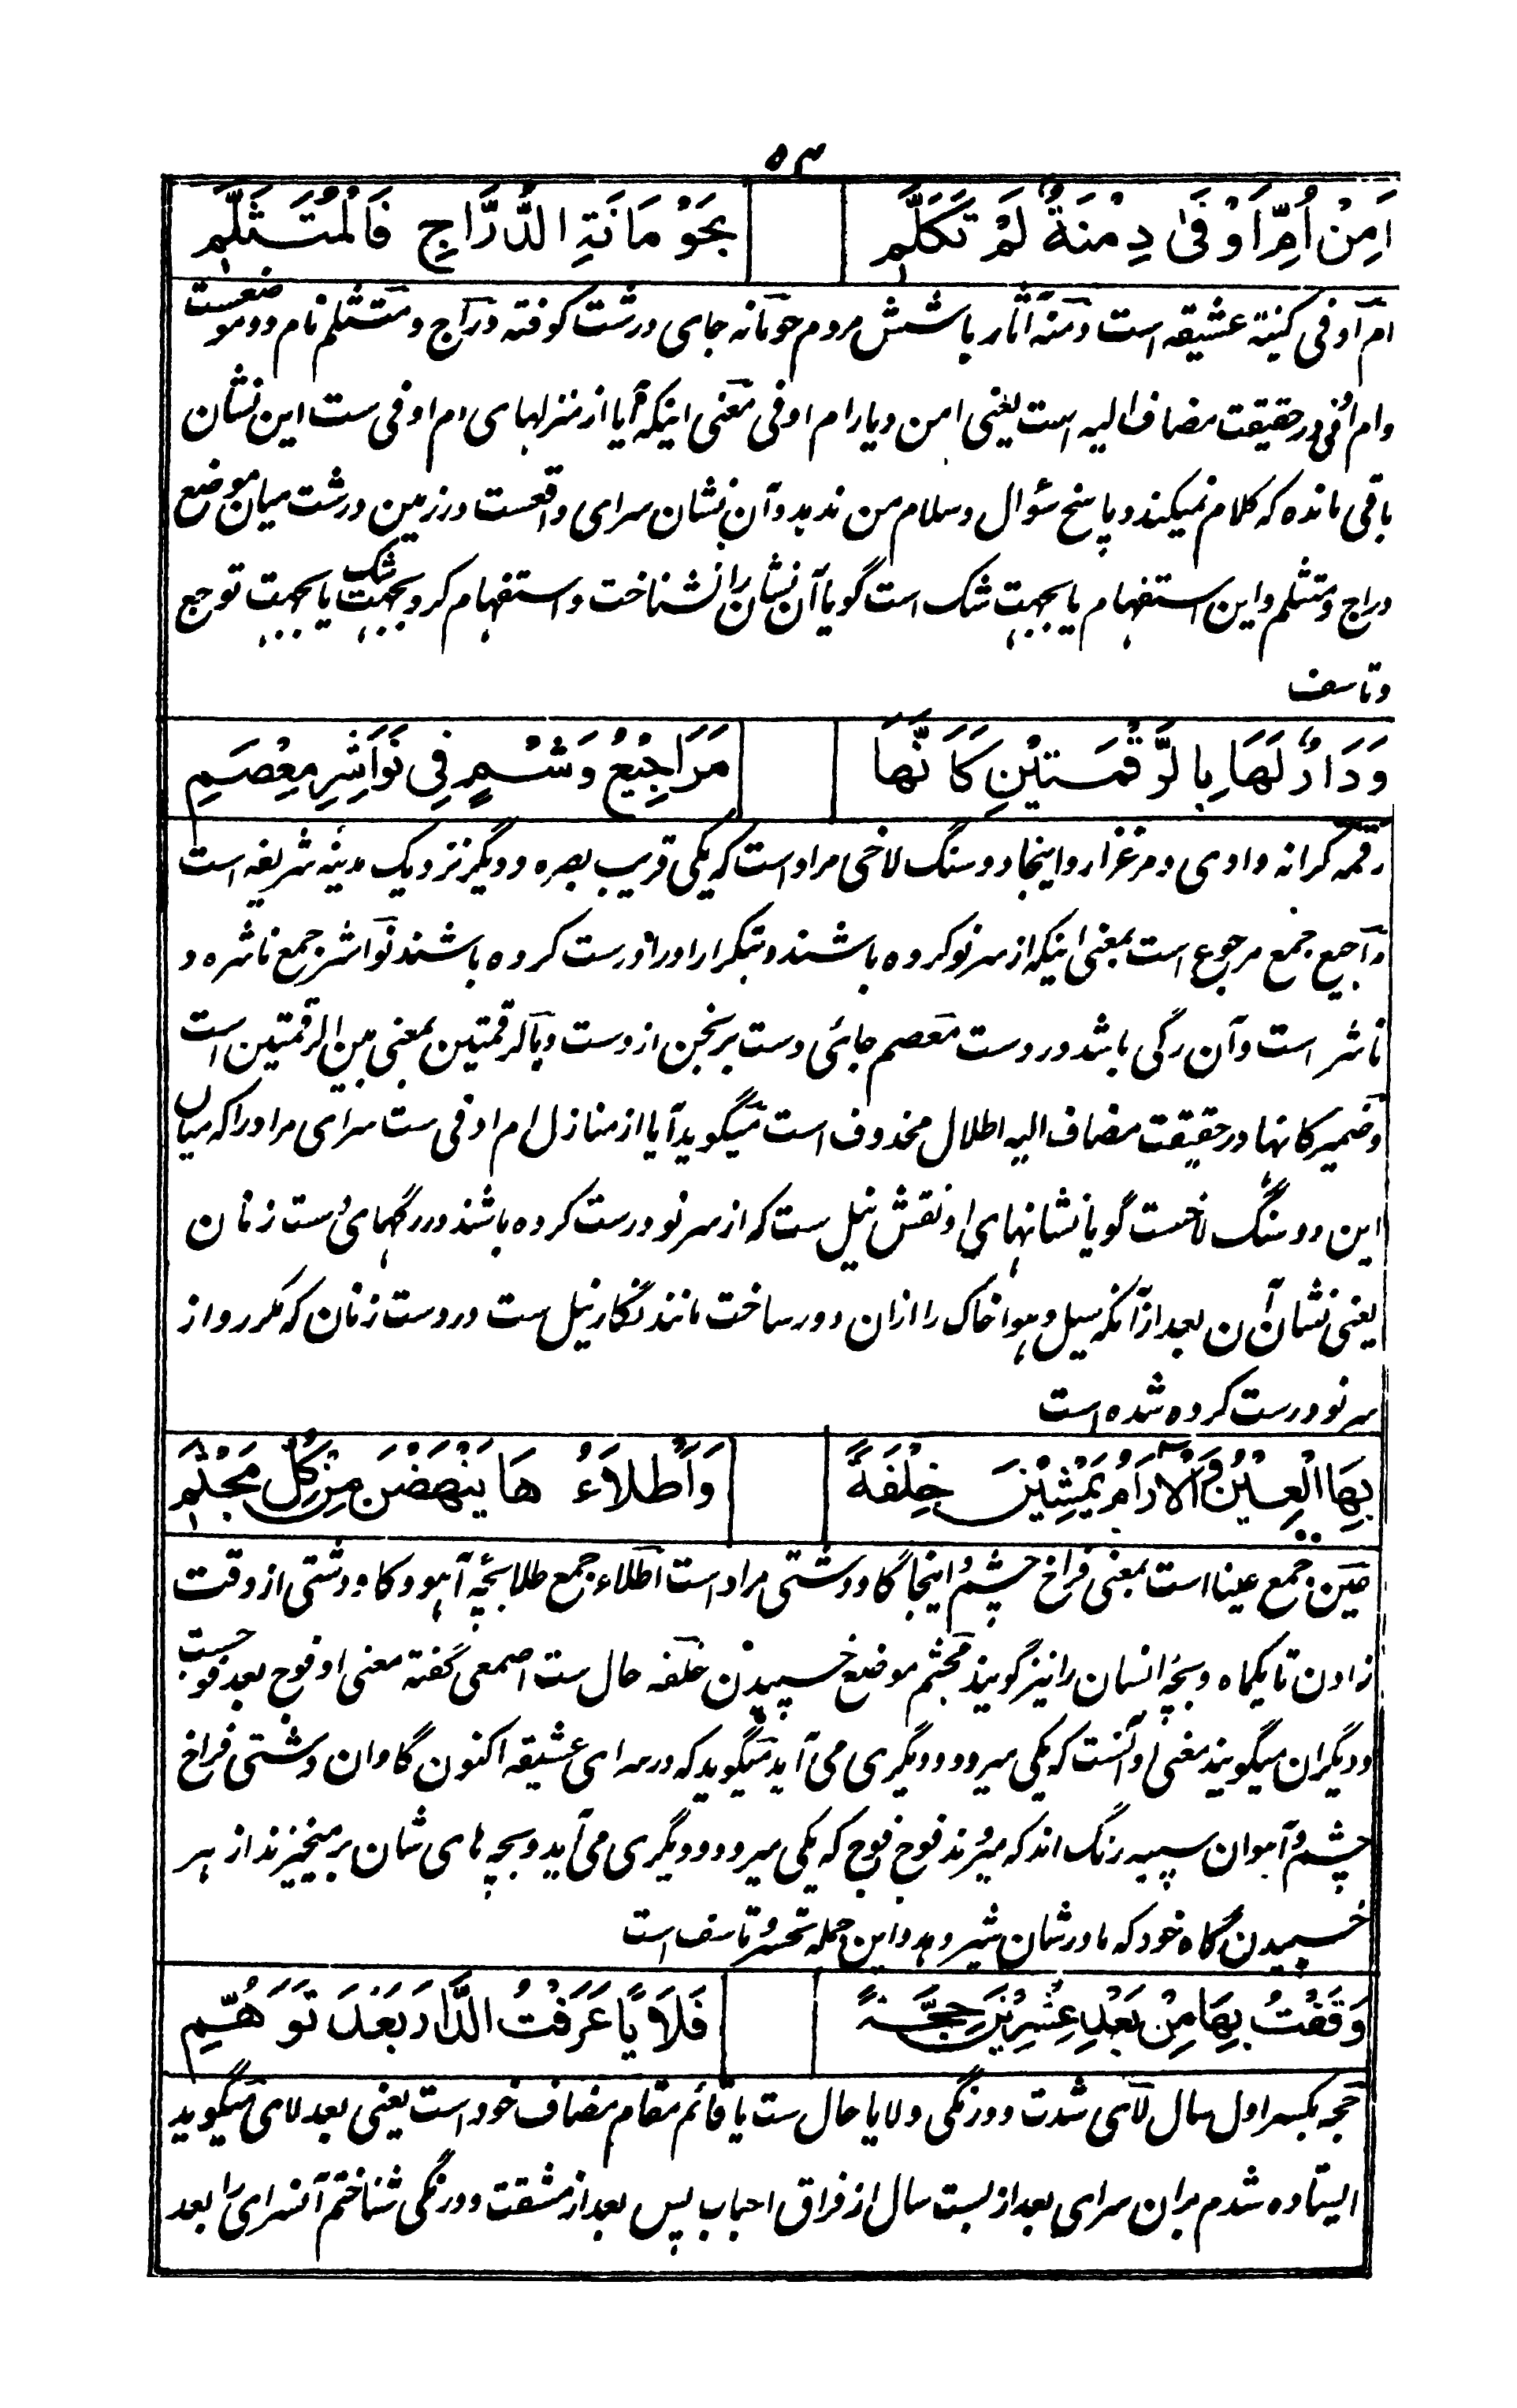 ۵۳
اَمِنْ اُمِّ اَوْفٰی دِمْنَةٌ لَمْ تَكَلَّمِ بِحَوْمَانَةِ الدَّرَّاجِ فَالْمُتَثَلَّمِ
ام اوفی کنیتہ عشیقہ است دمنہ آثار باشش مردم حومانہ جای درشت کوفتہ دراج و متثلم نام دو موضعست
وام اوفی در حقیقت مضاف الیہ است یعنی امن دیار ام اوفی معنی اینکہ آیا از منزلہای ام اوفی ست این نشان
باقی ماندہ کہ کلام نمیکند و پاسخ سؤال و سلام من ندہد و آن نشان سرای واقعست در زمین درشت میان موضع
دراج و متثلم و این استفہام یا بجہت شک است گویا آن نشان را نشناخت و استفہام کرد بجہت شک یا بجہت توجع
و تاسف
وَدَارٌ لَهَا بِالرَّقْمَتَیْنِ كَاَنَّهَا مَرَاجِیْعُ وَشْمٍ فِی نَوَاشِرِ مِعْصَمِ
رقمہ کرانہ وادی و مرغزار و اینجا دو سنگ لاخی مراد است کہ یکی قریب بصرہ و دیگر نزدیک مدینہ شریفہ است
مراجیع جمع مرجوع است بمعنی اینکہ از سر نو کردہ باشند و بتکرار او را درست کردہ باشند نواشر جمع ناشرہ و
ناشر است و آن رگی باشد در دست معصم جائی دست برنجن از دست و بالرقمتین بمعنی بین الرقمتین است
و ضمیر کانہا در حقیقت مضاف الیہ اطلال محذوف است میگوید آیا از منازل ام اوفی ست سرای مر او را کہ میاں
این دو سنگ لاخست گویا نشانہای او نقش نیل ست کہ از سر نو درست کردہ باشند در رگہای دست زنان
یعنی نشان آن بعد از آنکہ سیل و ہوا خاک را ازان دور ساخت مانند نگار نیل ست در دست زنان کہ مکرر و از
سر نو درست کردہ شدہ است
بِهَا الْعِیْنُ وَالْاٰرَامُ یَمْشِیْنَ خِلْفَةً وَاَطْلَاءُ هَا یَنْهَضْنَ مِنْ كُلِّ مَجْثَمِ
عین جمع عینا است بمعنی فراخ چشم و اینجا گاو دشتی مراد است اطلاء جمع طلا بچہ آہو و گاو دشتی از وقت
زادن تا یکماہ و بچہ انسان را نیز گویند مجثم موضع خسپیدن خلفہ حال ست اصمعی گفتہ معنی او فوج بعد فوجست
و دیگران میگویند معنی او آنست کہ یکی میرود و دیگری می آید میگوید کہ در سرای عشیقہ اکنون گاوان دشتی فراخ
چشم و آہوان سپید رنگ اند کہ میروند فوج فوج کہ یکی میرود و دیگری می آید و بچہ ہای شان بر میخیزند از ہر
خسپیدن گاہ خود کہ مادرشان شیر دہد و این جملہ تحسر و تاسف است
وَقَفْتُ بِهَا مِنْ بَعْدِ عِشْرِیْنَ حِجَّةً فَلَاْیًا عَرَفْتُ الدَّارَ بَعْدَ تَوَهُّمِ
حجہ بکسر اول سال لای شدت و درنگی و لایا حال ست یا قائم مقام مضاف خود است یعنی بعد لای میگوید
ایستادہ شدم بران سرای بعد از بست سال از فراق احباب پس بعد از مشقت و درنگی شناختم آنسرای را بعد